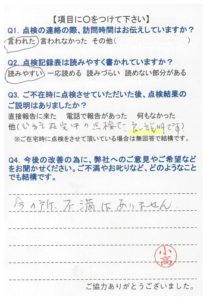 【項目に○をつけて下さい】
Q1. 点検の連絡の際、訪問時間はお伝えしていますか？
言われた 言われなかった その他（ ）
Q2. 点検記録表は読みやすく書かれていますか？
読みやすい 一応読める 読みづらい 読めない部分がある
Q3. ご不在時に点検させていただいた後、点検結果の
ご説明はありましたか？
直接報告に来た 電話で報告があった 何もなかった
他（いつも在宅中の点検で です）
※ご在宅時に点検をさせて頂いている場合は無回答で結構です。
Q4. 今後の改善の為に、弊社へのご意見やご希望など
をお聞かせください。ご不満やお叱りなど、どのようなこと
でも結構です。
今の所、不満はありません
小高
ご協力ありがとうございました。